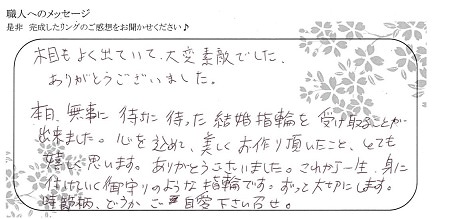 職人へのメッセージ
是非 完成したリングのご感想をお聞かせください♪
木目もよく出ていて、大変素敵でした。
ありがとうございました。
本日、無事に 待ちに 待った 結婚指輪を 受け取ることが
出来ました。心を込めて、美しくお作り頂いたこと、とても
嬉しく思います。ありがとうございました。これから一生、身に
付けていく御守りのような 指輪です。ずっと大切にします。
時節柄、どうか ご自愛下さいませ。